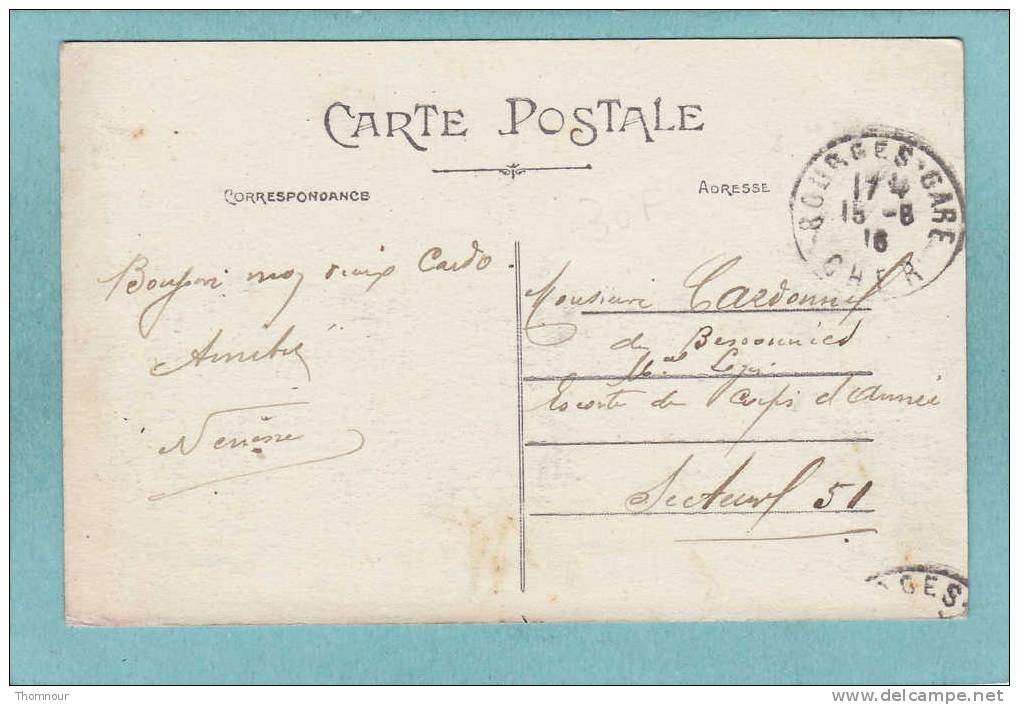 CARTE POSTALE
CORRESPONDANCE
ADRESSE
BOURGES-GARE
17
15 -8
16
CHER
30F
Bonjour mon vieux Cardo.
Amitié
Nénesse
Monsieur Cardonnel
de
Escorte du Corps d'Armée
Secteur 51
GES-
Thomnour
www.delcampe.net